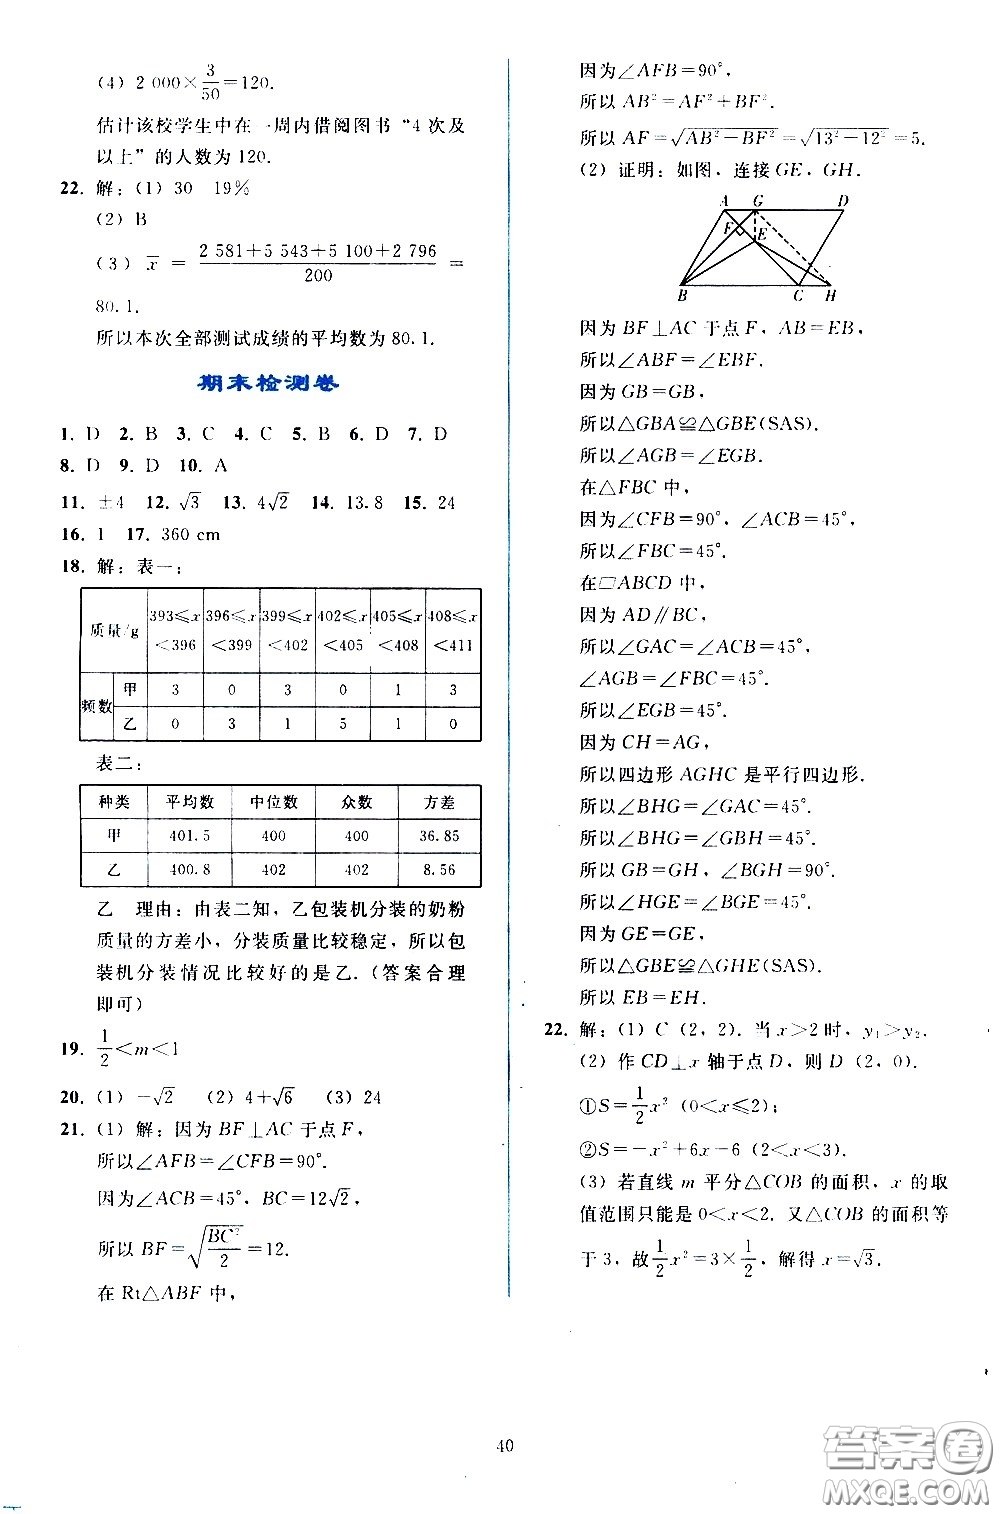 (4) 2 000×3/50=120.
估计该校学生中在一周内借阅图书“4次及
以上”的人数为120.
22. 解：(1) 30 19%
(2) B
(3) x̄ = (2 581+5 543+5 100+2 796)/200 =
80.1.
所以本次全部测试成绩的平均数为80.1.
期末检测卷
1. D 2. B 3. C 4. C 5. B 6. D 7. D
8. D 9. D 10. A
11. ±4 12. √3 13. 4√2 14. 13.8 15. 24
16. 1 17. 360 cm
18. 解：表一：
质量/g 393≤x<396 396≤x<399 399≤x<402 402≤x<405 405≤x<408 408≤x<411
频数 甲 3 0 3 0 1 3
乙 0 3 1 5 1 0
表二：
种类 平均数 中位数 众数 方差
甲 401.5 400 400 36.85
乙 400.8 402 402 8.56
乙 理由：由表二知，乙包装机分装的奶粉
质量的方差小，分装质量比较稳定，所以包
装机分装情况比较好的是乙.(答案合理
即可)
19. 1/2<m<1
20. (1) －√2 (2) 4+√6 (3) 24
21. (1) 解：因为BF⊥AC于点F，
所以∠AFB=∠CFB=90°.
因为∠ACB=45°，BC=12√2，
所以BF=√(BC²/2)=12.
在Rt△ABF中，
因为∠AFB=90°，
所以AB²=AF²+BF².
所以AF=√(AB²－BF²)=√(13²－12²)=5.
(2) 证明：如图，连接GE，GH.
A G D
F E
B C H
因为BF⊥AC于点F，AB=EB，
所以∠ABF=∠EBF.
因为GB=GB，
所以△GBA≌△GBE(SAS).
所以∠AGB=∠EGB.
在△FBC中，
因为∠CFB=90°，∠ACB=45°，
所以∠FBC=45°.
在▱ABCD中，
因为AD∥BC，
所以∠GAC=∠ACB=45°，
∠AGB=∠FBC=45°.
所以∠EGB=45°.
因为CH=AG，
所以四边形AGHC是平行四边形.
所以∠BHG=∠GAC=45°.
所以∠BHG=∠GBH=45°.
所以GB=GH，∠BGH=90°.
所以∠HGE=∠BGE=45°.
因为GE=GE，
所以△GBE≌△GHE(SAS).
所以EB=EH.
22. 解：(1) C (2, 2). 当x>2时，y₁>y₂.
(2) 作CD⊥x轴于点D，则D (2, 0).
①S=1/2x² (0<x≤2)；
②S=－x²+6x－6 (2<x<3).
(3) 若直线m平分△COB的面积，x的取
值范围只能是0<x<2. 又△COB的面积等
于3，故1/2x²=3×1/2，解得x=√3.
40
答案圈
MXQE.COM